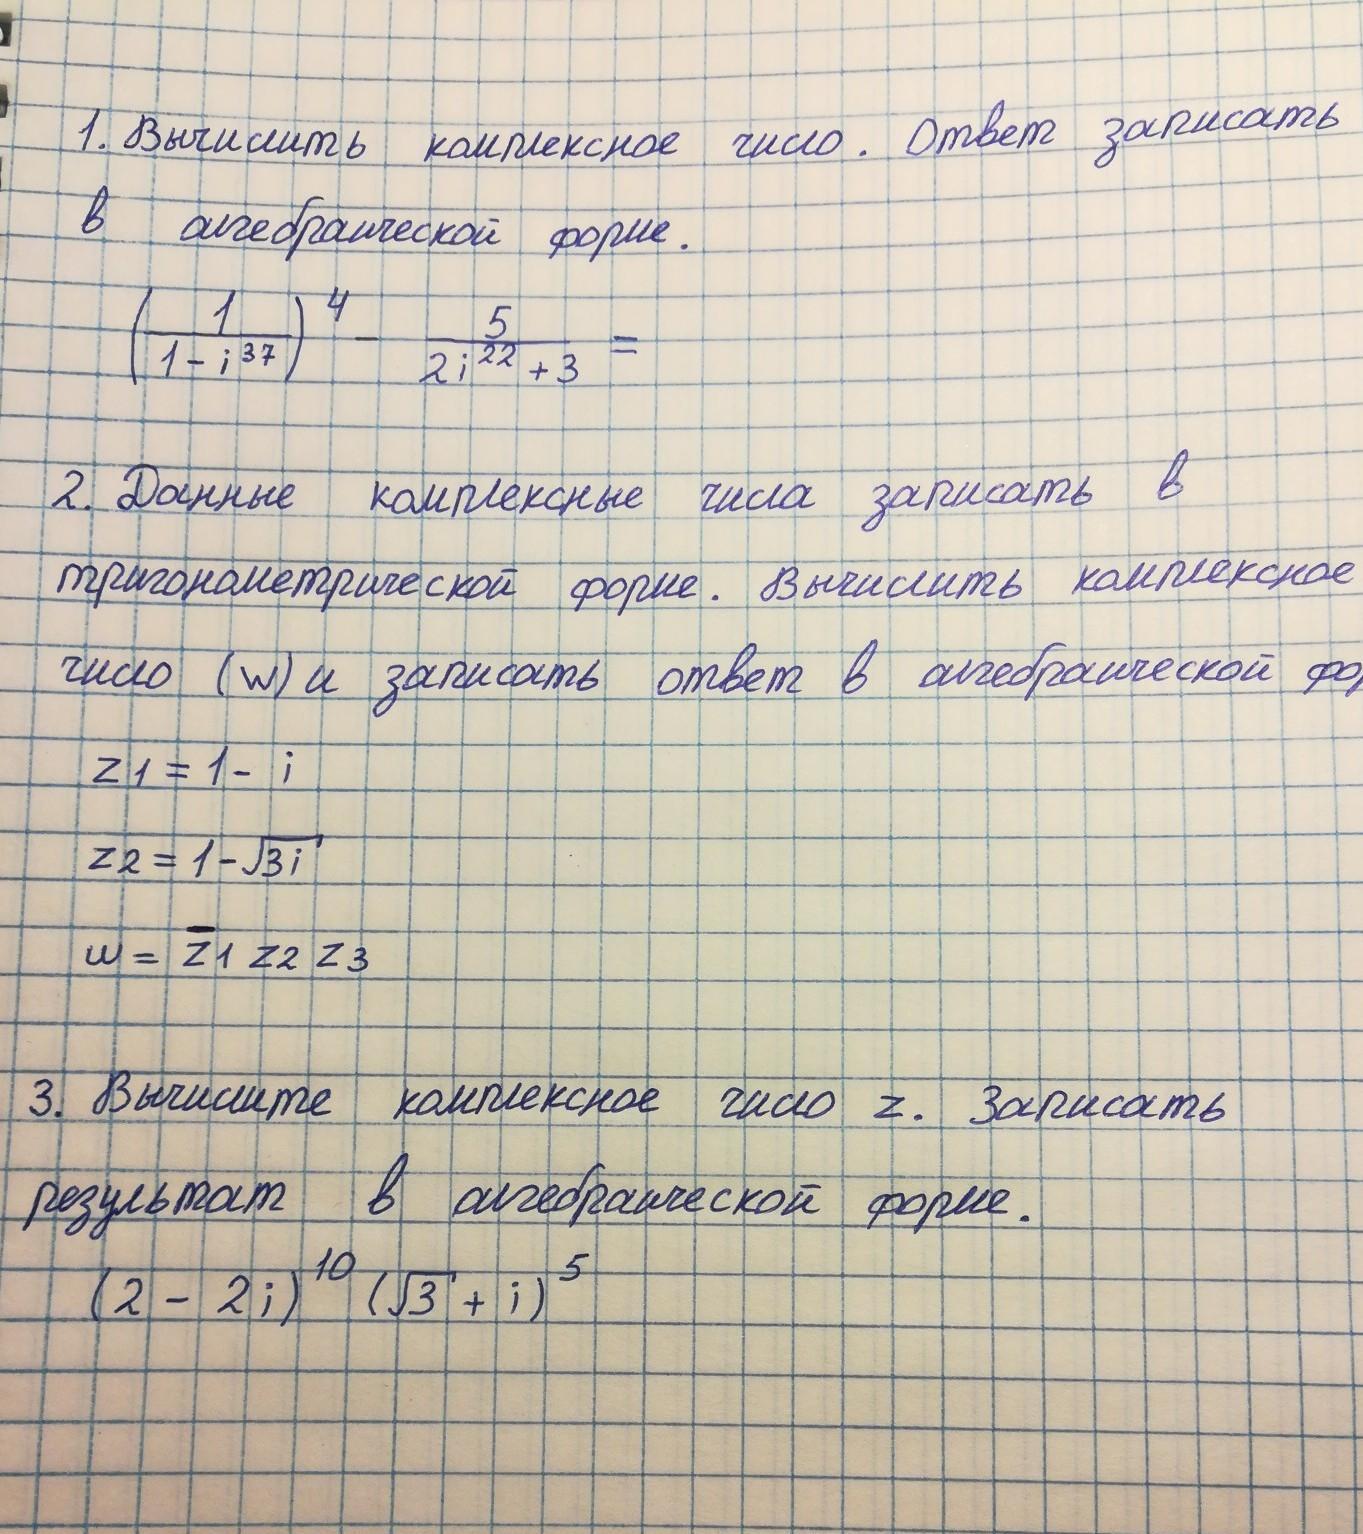 1. Вычислить комплексное число. Ответ записать
в алгебраической форме.
(1/(1-i^37))^4 - 5/(2i^22+3) =
2. Данные комплексные числа записать в
тригонометрической форме. Вычислить комплексное
число (w) и записать ответ в алгебраической фор
z1 = 1- i
z2 = 1-√3i
w = z̅1 z2 z3
3. Вычислите комплексное число z. Записать
результат в алгебраической форме.
(2 - 2i)^10 (√3 + i)^5